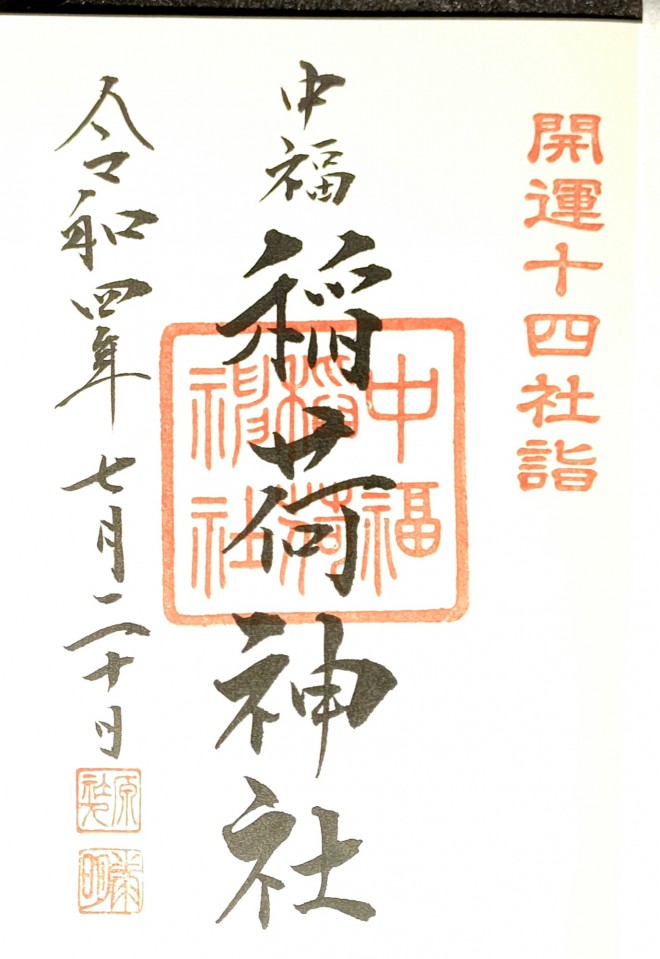 開運十四社詣
中福
稲荷神社
中福
稲荷
神社
令和四年七月二十日